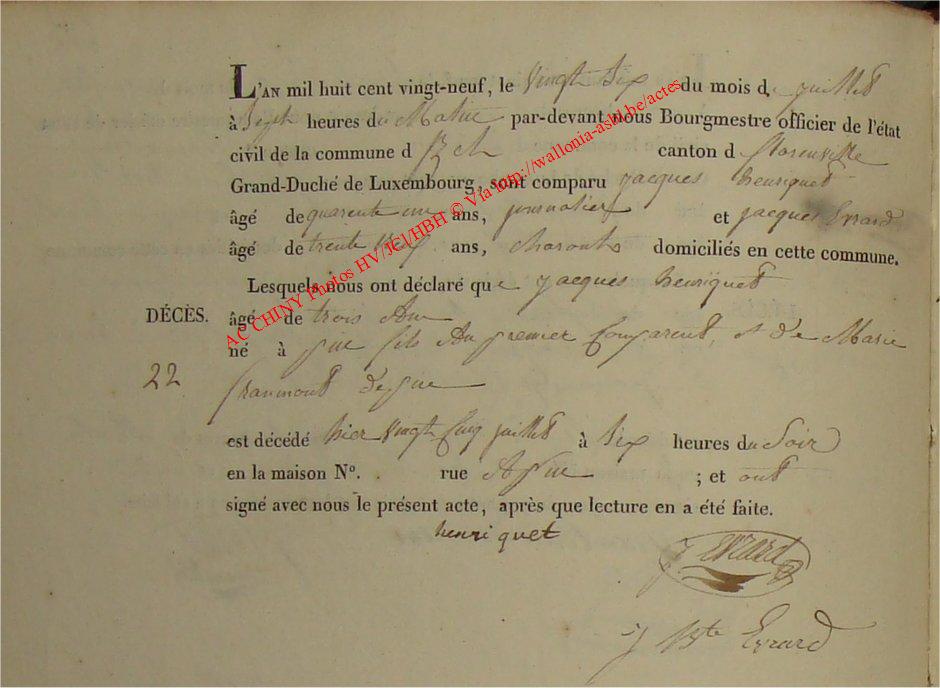 L'AN mil huit cent vingt-neuf, le vingt Six du mois de juillet
à Sept heures du Matin par-devant nous Bourgmestre officier de l'état
civil de la commune d' canton de florenville
Grand-Duché de Luxembourg, sont comparu jacques henriquet
âgé de quarente un ans, journalier et jacques Evrard
âgé de trente ans, domiciliés en cette commune.
Lesquels nous ont déclaré que jacques henriquet
DÉCÈS. âgé de trois An
né à fils du premier Comparent, et de Marie
22
est décédé hier vingt Cinq juillet à Six heures du Soir
en la maison N°. rue ; et ont
signé avec nous le présent acte, après que lecture en a été faite.
henriquet
J Evrard
J Bte Evrard
AC CHINY Photos HV/JCl/HBH © Via http://wallonia-asbl.be/actes